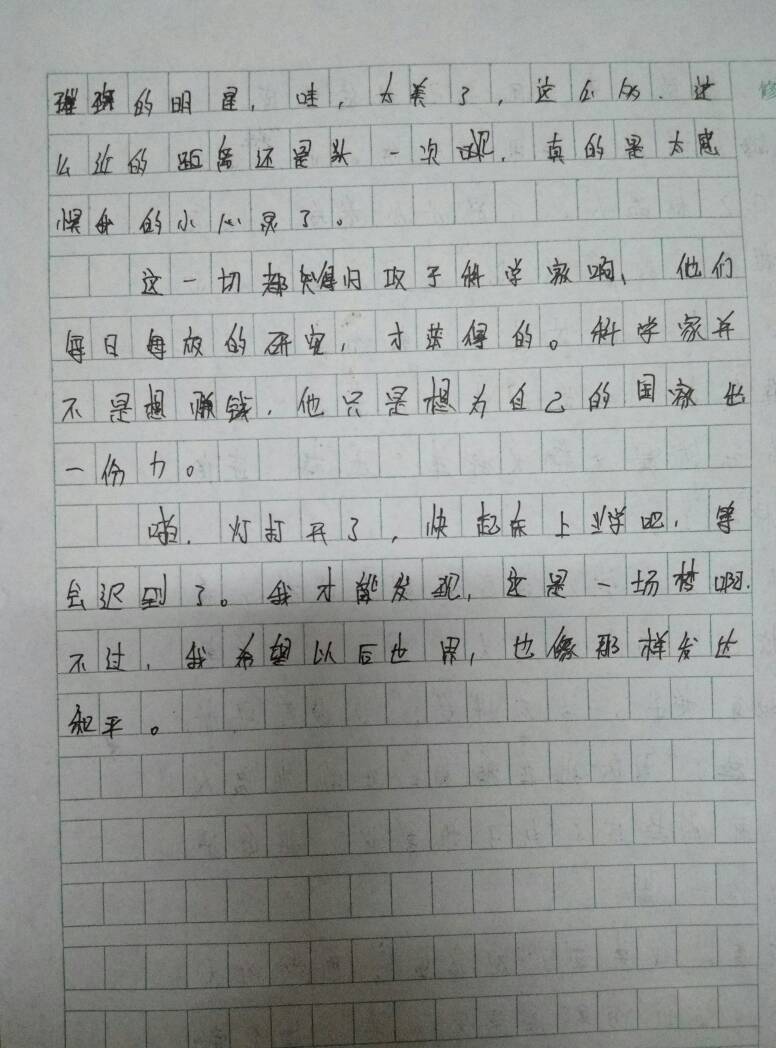 璀璨的明星，哇，太美了，这么多.这
么近的距离还是头一次呢，真的是太感
惧我的小心灵了。
这一切都得归功于科学家啊、他们
每日每夜的研究，才获得的。科学家并
不是想赚钱，他只是想为自己的国家出
一份力。
啪，灯打开了，快起床上学吧，等
会迟到了。我才能发现，这是一场梦啊.
不过，我希望以后世界，也像那样发达
和平。